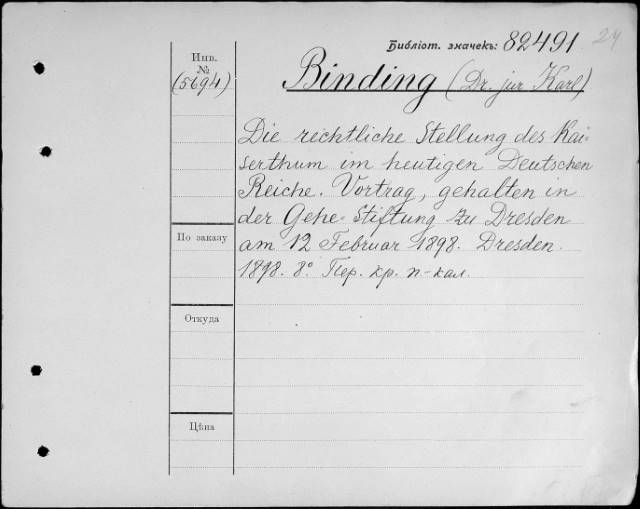 Библіот. значекъ: 82491 24
Инв.
№
(5694)
Binding (Dr. jur Karl)
Die rechtliche Stellung des Kai-
serthum im heutigen Deutschen
Reiche. Vortrag, gehalten in
der Gehe-Stiftung zu Dresden
am 12 Februar 1898. Dresden.
1898. 8° Пер. кр. п-кал.
По заказу
Откуда
Цѣна